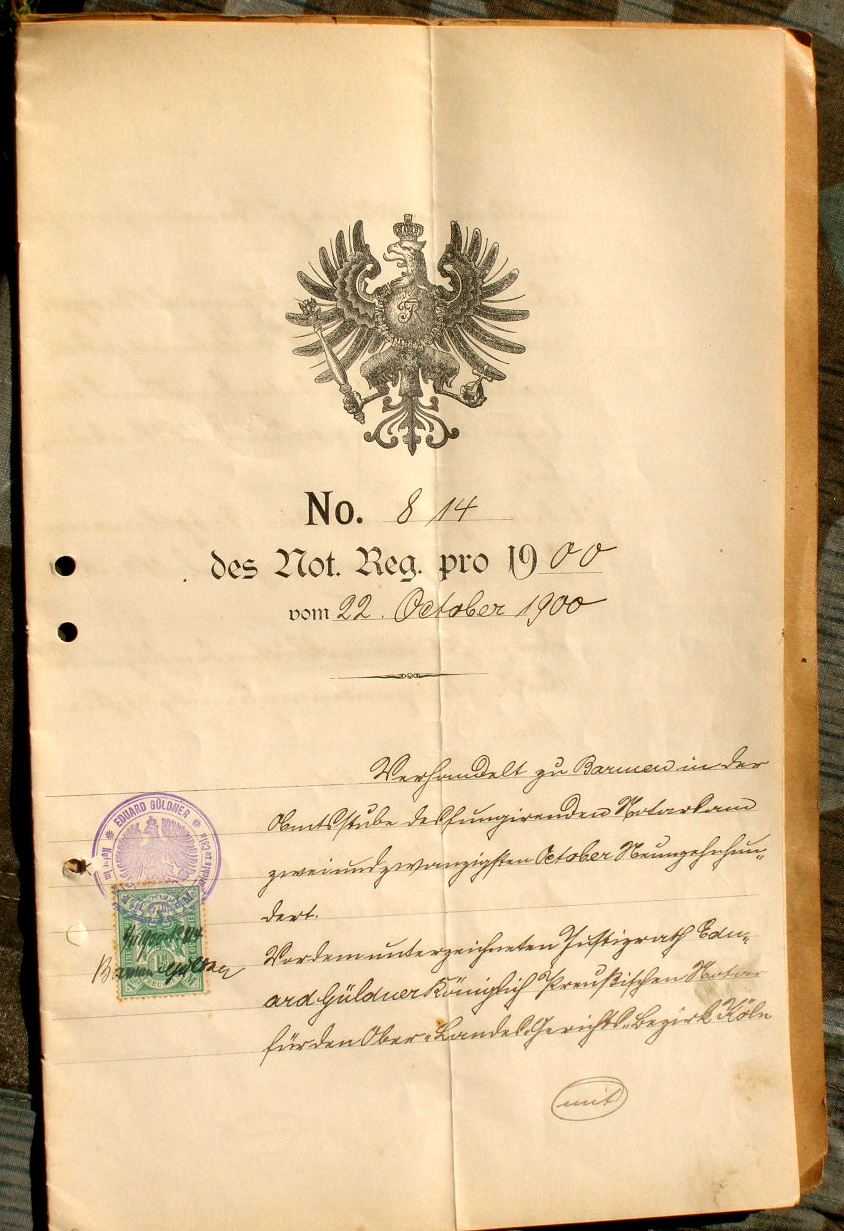 FR
No. 814
des Not. Reg. pro 1900
vom 22. October 1900
Verhandelt zu Barmen in der
Amtsstube des fungirenden Notars am
zweiundzwanzigsten October Neunzehnhun„
dert.
Vor dem unterzeichneten Justizrath Edu„
ard Güldner Königlich Preußischen Notar
für den Ober„Landes„Gerichts„Bezirk Köln
mit
* EDUARD GÜLDNER *
Barmen Güldner